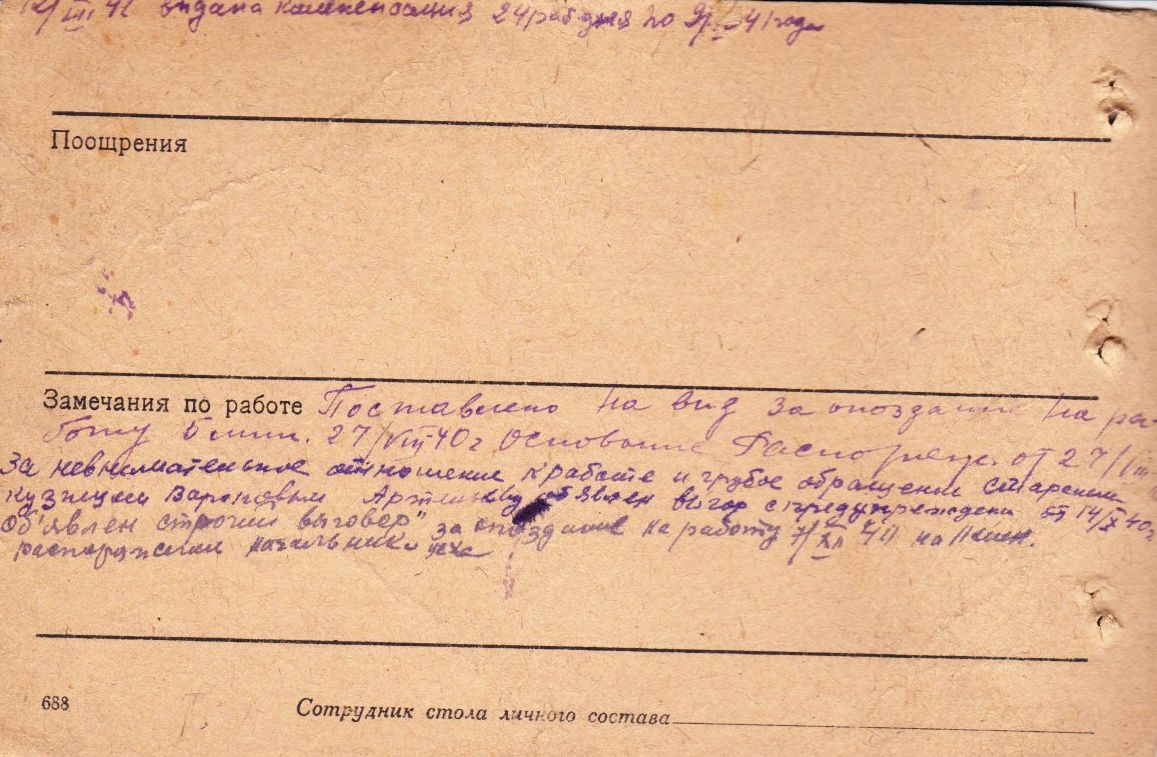 12/III 41 видана компенсация 24 раб дня по 41 года
Поощрения
Замечания по работе Поставлено на вид за опоздание на ра
боту 5 мин. 27/VIII-40г Основание Распоряж. от 27/VIII
За невнимательное отношение к работе и грубое обращение старшим
кузнецом об'явлен выговор с предупреждени от 14/X 40г
Об'явлен строгий выговор" за опоздание на работу 7/XII 40 на мин.
распоряжении начальника цеха
688
Сотрудник стола личного состава